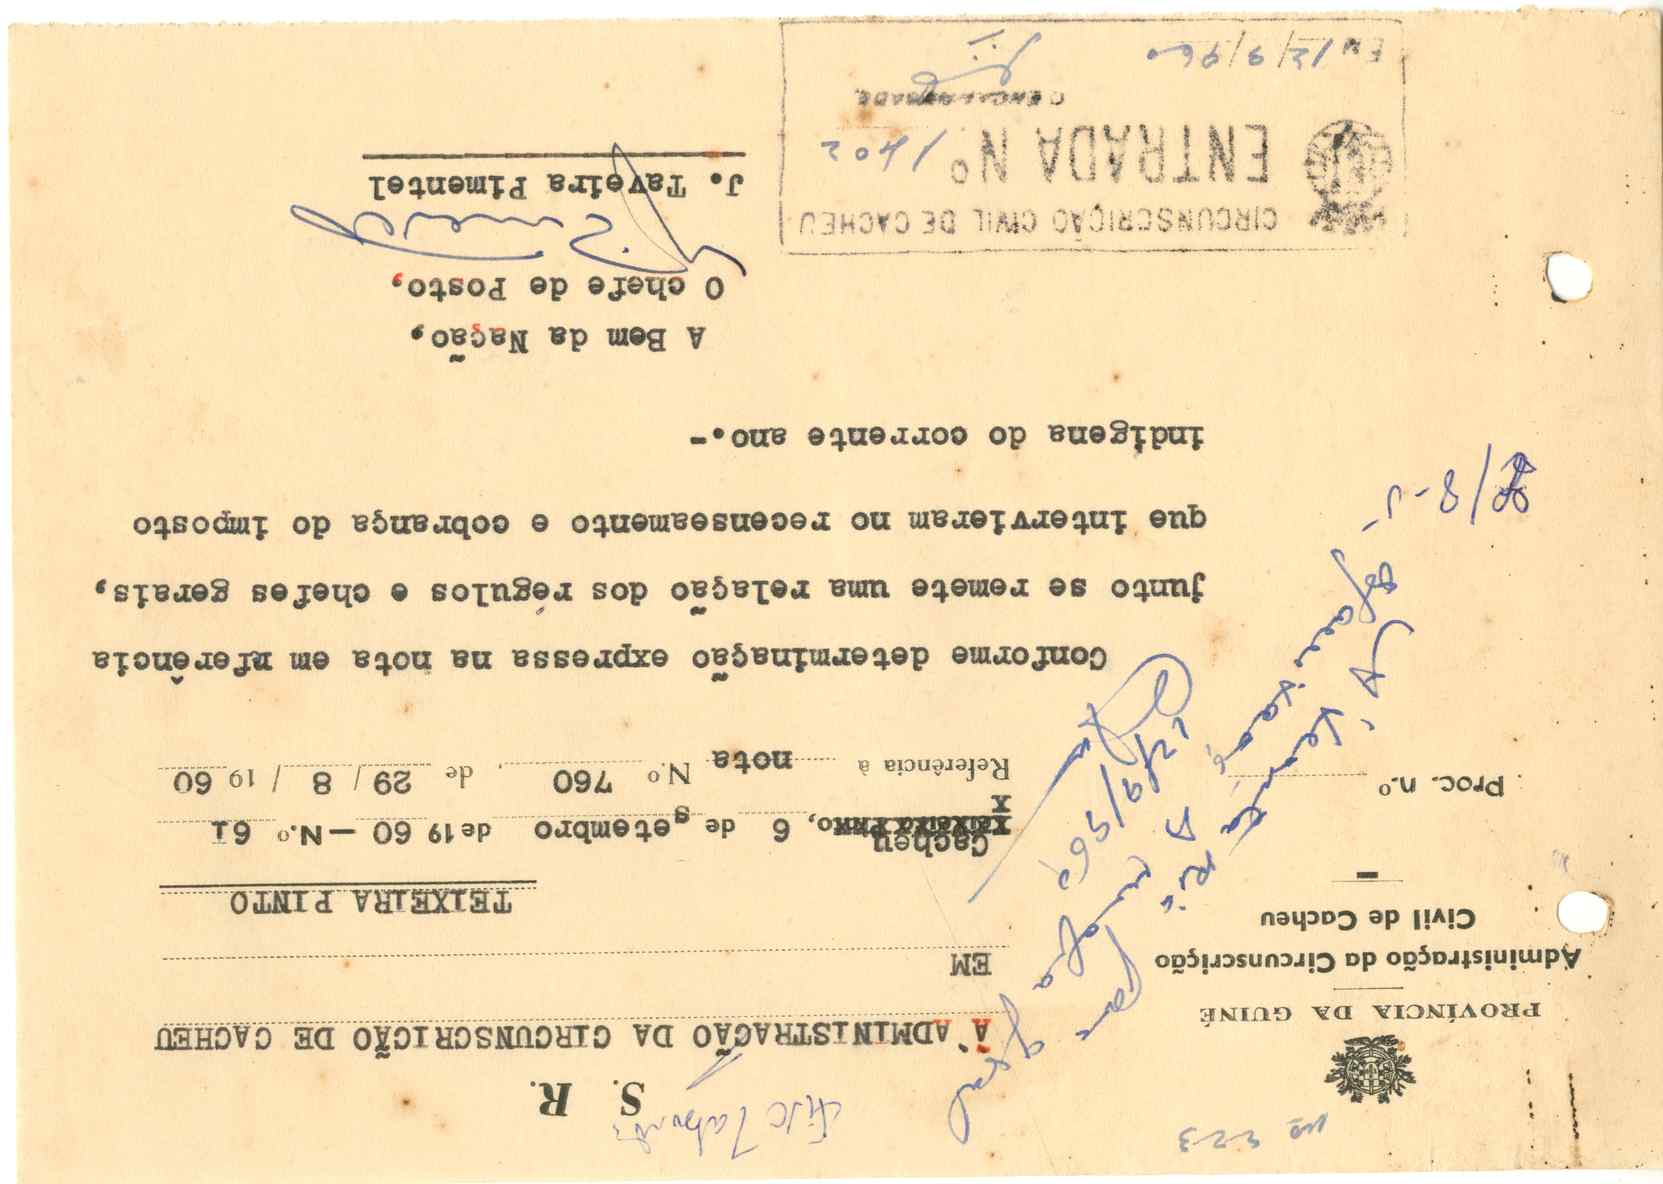 Nº 223
PROVÍNCIA DA GUINÉ
Administração da Circunscrição
Civil de Cacheu
Proc. n.º
S. R.
À ADMINISTRAÇÃO DA CIRCUNSCRIÇÃO DE CACHEU
EM
TEIXEIRA PINTO
Cacheu
, 6 de setembro de 19 60 — N.º 61
Referência à nota N.º 760, de 29 / 8 / 19 60
Conforme determinação expressa na nota em rferência
junto se remete uma relação dos régulos e chefes gerais,
que intervieram no recenseamento e cobrança do imposto
indígena do corrente ano.-
A Bem da Nação,
O chefe de Posto,
J. Taveira Pimentel
CIRCUNSCRIÇÃO CIVIL DE CACHEU
ENTRADA Nº 1402
O ENCARREGADO
EM 12/9/960